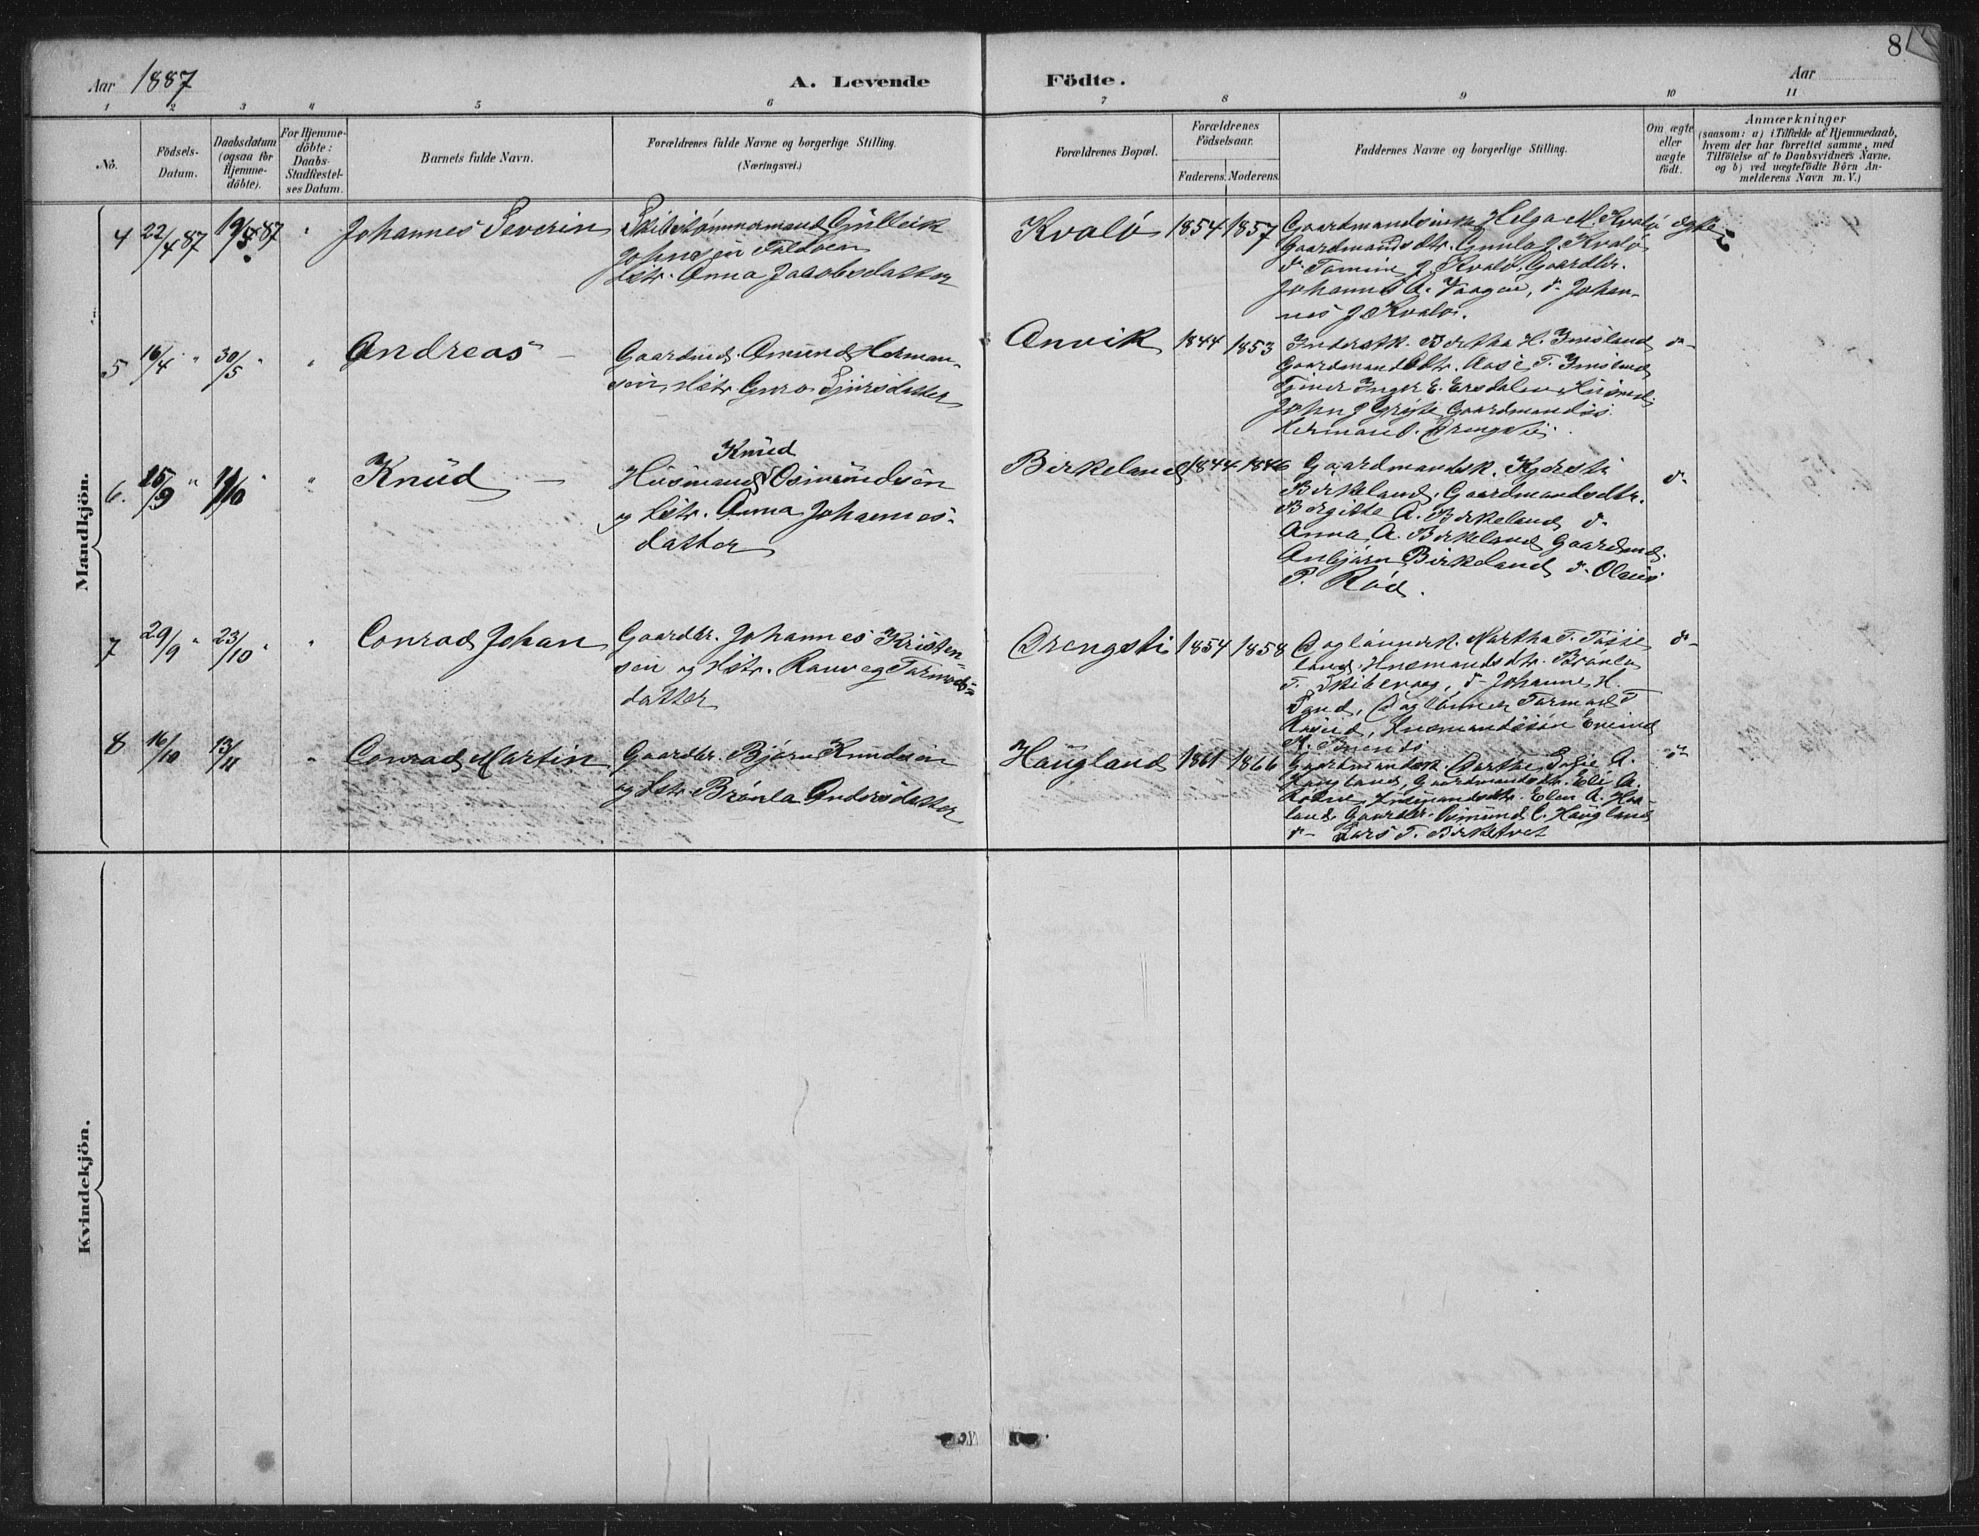 8
Aar 1887
A. Levende Födte.
Aar
1 2 3 4 5 6 7 8 9 10 11
No.
Födsels-
Datum.
Daabsdatum
(ogsaa for
Hjemme-
döbte).
For Hjemme-
döbte:
Daabs-
Stadfæstel-
ses Datum.
Barnets fulde Navn.
Forældrenes fulde Navne og borgerlige Stilling.
(Næringsvei.)
Forældrenes Bopæl.
Forældrenes
Födselsaar.
Faderens. Moderens.
Faddernes Navne og borgerlige Stilling.
Om ægte
eller
uægte
födt.
Anmærkninger
(saasom: a) i Tilfælde af Hjemmedaab,
hvem der har forrettet samme, med
Tilföielse af to Daabsvidners Navne,
og b) ved uægtefödte Börn An-
melderens Navn m. V.)
Mandkjön.
4 22/4 87 19/5 87 " Johannes Severin
Skibstömmermand Gulleik
Johnsen
Hstr. Anna Jakobsdatter
Kvalö 1854 1857
Helga M. Kvalö
Gaardmandsdtr. Gunla J. Kvalö
d- J. Kvalö, Gaardbr.
Johannes A. Vaage, d- Johan-
nes J. Kvalö.
ægte
5 16/4 " 30/5 " " Andreas -
Gaardmd. Amund Herman-
sen, Hstr. Guro
Anvik 1844 1853
Inderstk. Bertha H. Imsland
Gaardmandsdtr. Aase T. Imsland
Inger E.
John J.
Herman
d-
6. 25/9 " 19/10 " " Knud -
Knud
Husmand Osmundsen
og Hstr. Anna Johannes-
datter
Birkeland 1844 1846
Gaardmandsk. Kjersti
Birkeland, Gaardmandsdtr.
Birgitte A. Birkeland d-
Anna A. Birkeland Gaardmd.
Anbjörn Birkeland d- Olaus
P. Röd.
d-
7 29/9 " 23/10 " " Conrad Johan
Gaardbr. Johannes Kristen-
sen og Hstr. Ranveg Tormods-
datter
Drengsti 1854 1858
Daglönnerk. Martha T.
Husmandsdtr. Brönla
T. Skibevaag, d- Johanne H.
Sand, Daglönner Tormod T.
Husmandssön Eveind
d-
8 16/10 13/11 " Conrad Martin
Gaardbr. Björn Knudsen
og Hstr. Brönla Andersdatter
Haugland 1861 1866
Gaardmandsk. Dorthe Sofie A.
Haugland, Gaardmandsdtr. Eli A.
Husmandsdtr. Elen A. Hau-
land, Gaardbr. Osmund C. Haugland
d- Lars T. Birketvet
d-
Kvindekjön.